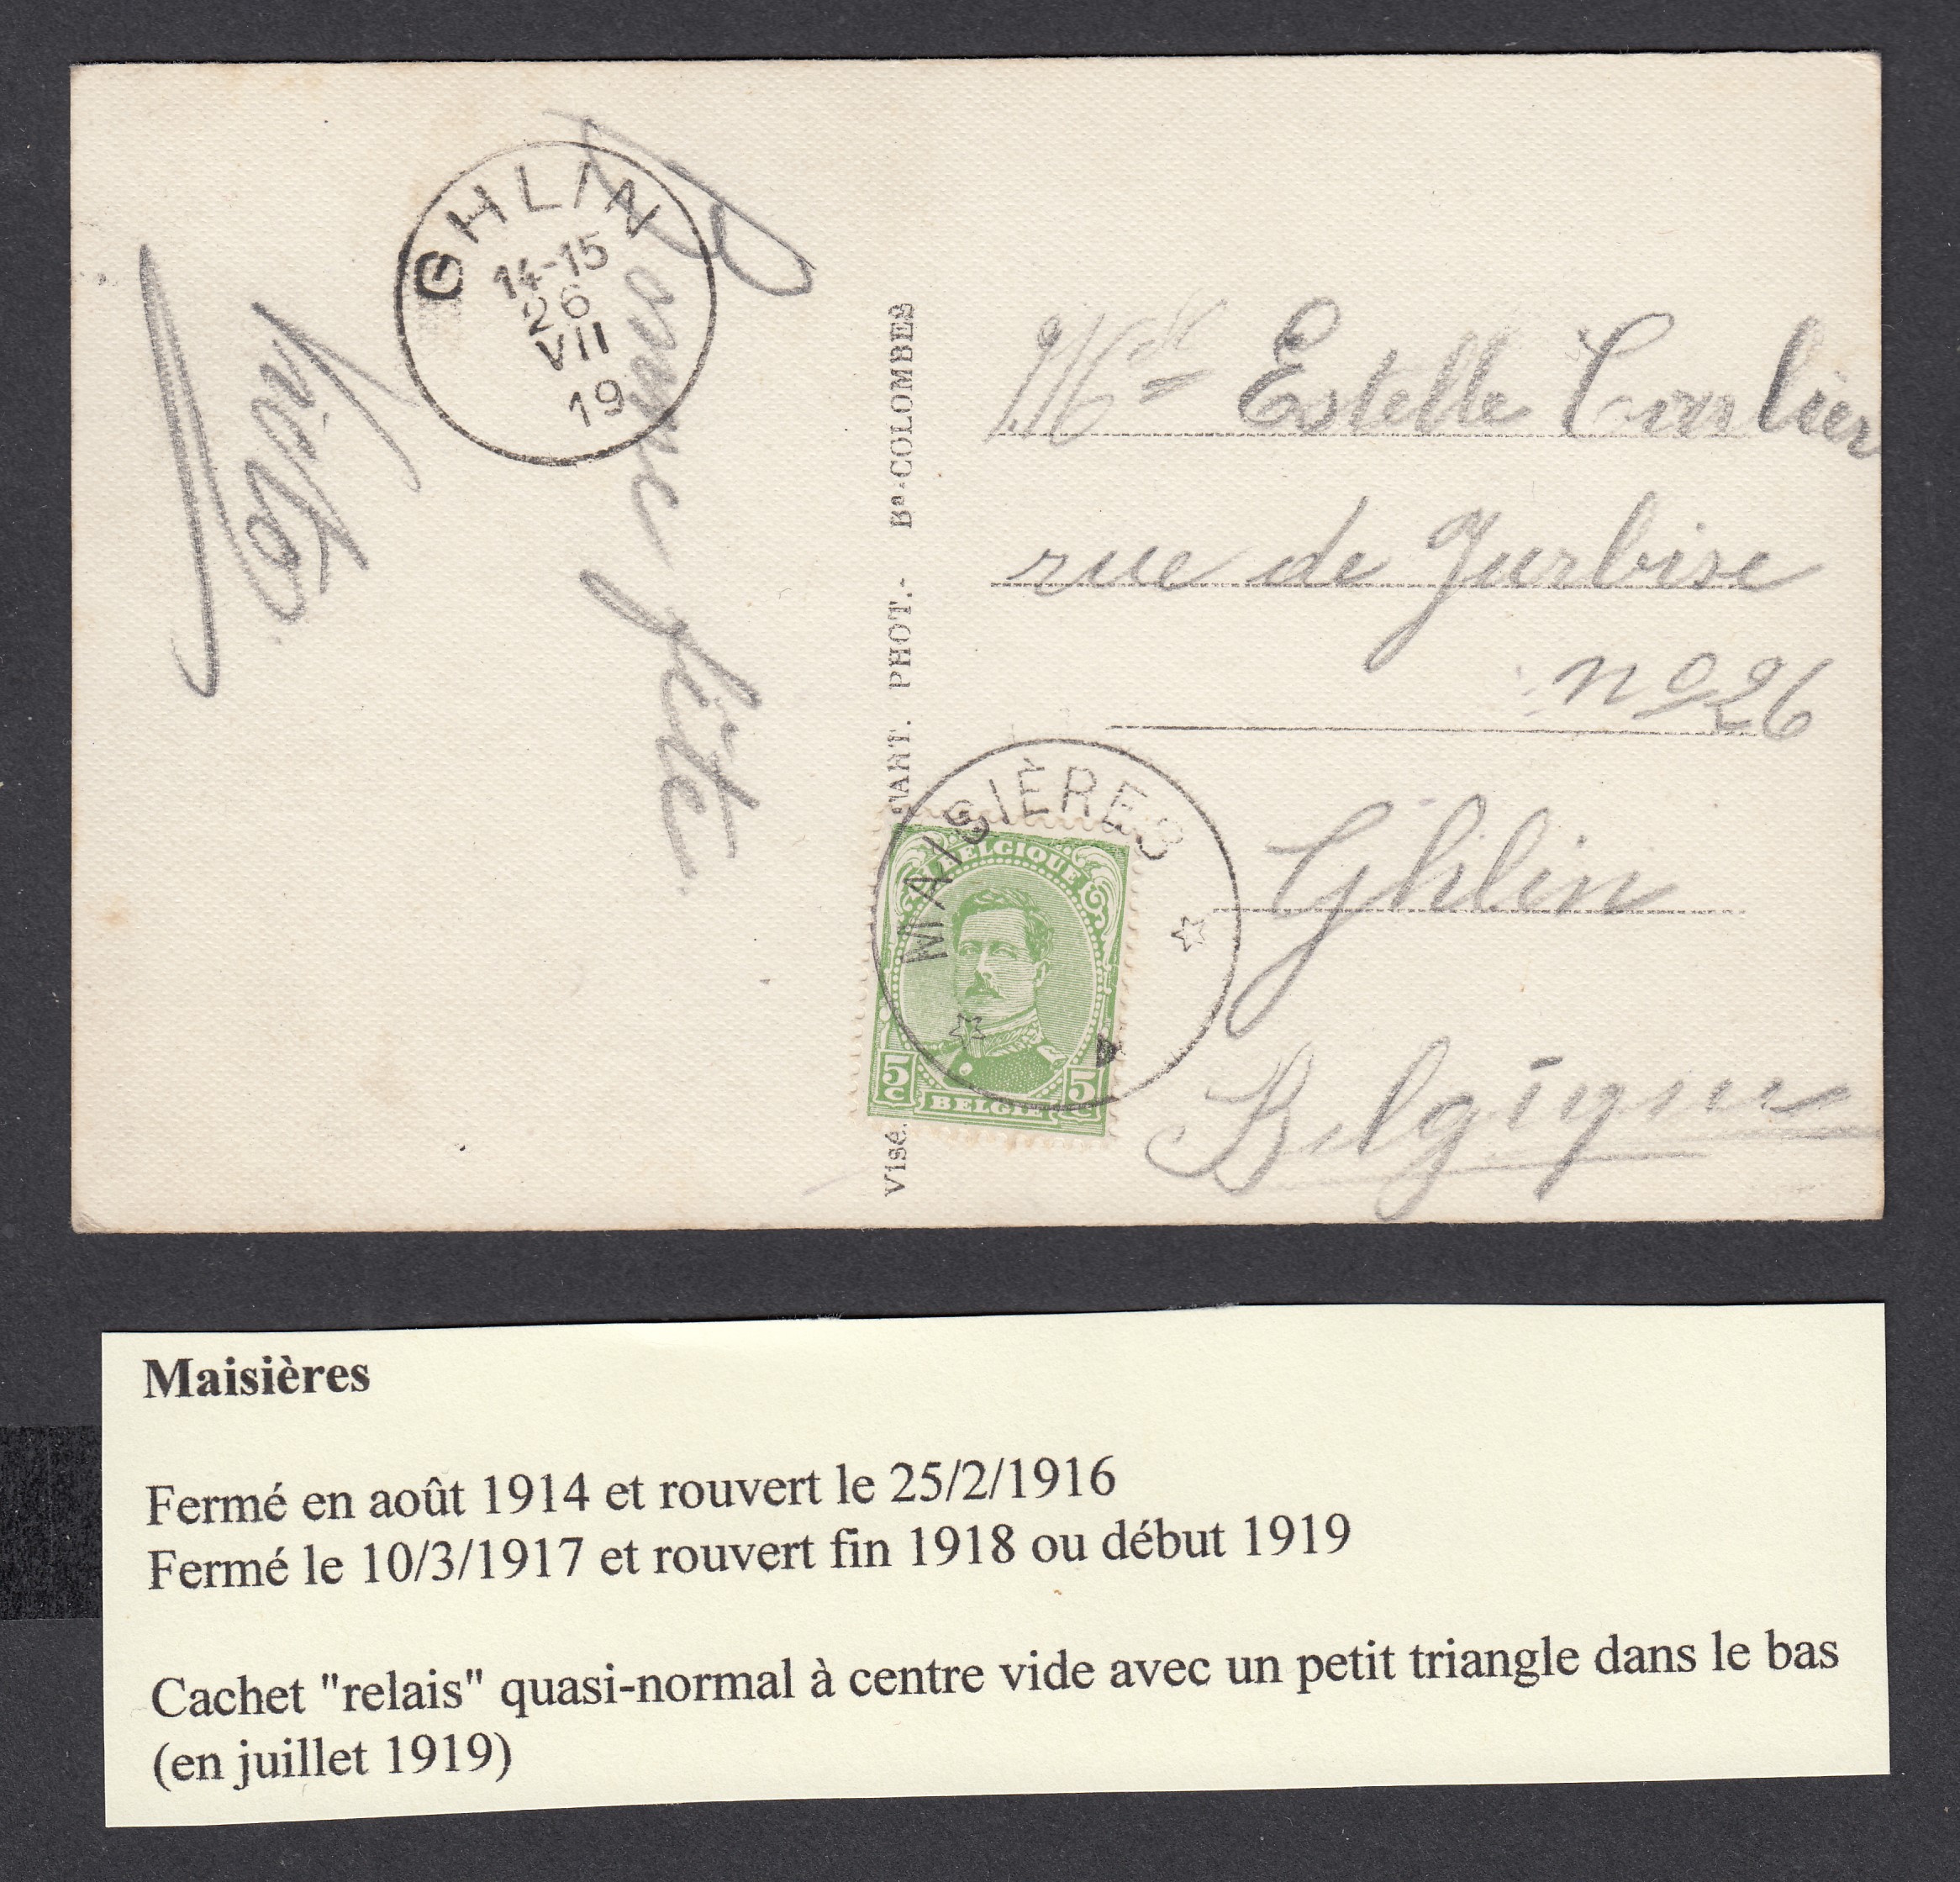 GHLIN
14-15
26
VII
19
Bonne fête.
Visé. PART. PHOT.- Bs-COLOMBES
Estelle Carlier
rue de Jurbise
nº 26
Ghlin
Belgique
MAISIÈRES
BELGIQUE
5c 5c
BELGIE
Maisières
Fermé en août 1914 et rouvert le 25/2/1916
Fermé le 10/3/1917 et rouvert fin 1918 ou début 1919
Cachet "relais" quasi-normal à centre vide avec un petit triangle dans le bas
(en juillet 1919)